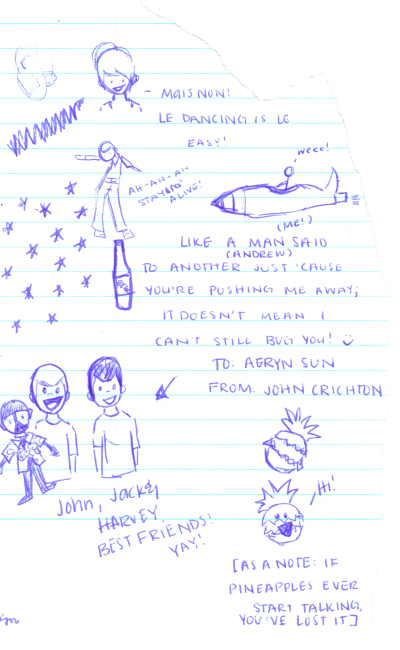 – MAIS NON!
LE DANCING IS LE
EASY!
AH-AH-AH
STAYING
ALIVE!
WEEE!
(ME!)
LIKE A MAN SAID
(ANDREW)
TO ANOTHER JUST 'CAUSE
YOU'RE PUSHING ME AWAY;
IT DOESN'T MEAN I
CAN'T STILL BUG YOU! :)
TO: AERYN SUN
FROM: JOHN CRICHTON
John, Jack &
HARVEY.
BEST FRIENDS!
YAY!
Hi!
[AS A NOTE: IF
PINEAPPLES EVER
START TALKING,
YOU'VE LOST IT]